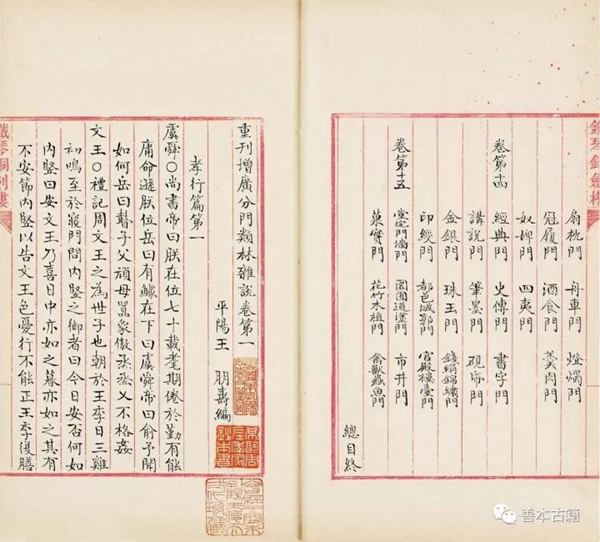 扇枕門 舟車門 燈燭門
冠履門 酒食門 羹肉門
奴婢門 四夷門
卷第十四 經典門 史傳門 書字門
講說門 筆墨門 硯帋門
金銀門 珠玉門 錢絹錦繡門
印綬門 都邑城郭門 宮殿樓臺門
卷第十五 堂宅門墻門 園囿道逕門 市井門
菓實門 花竹木植門 禽獸蟲魚門
總目終
重刊增廣分門類林雜說卷第一
平陽王 朋壽編
孝行篇第一
虞舜○尚書帝曰朕在位七十載耄期倦於勤有能
庸命遜朕位岳曰有鰥在下曰虞舜帝曰俞予聞
如何岳曰瞽子父頑母嚚象傲烝烝乂不格姦
文王○禮記周文王之為世子也朝於王季日三雞
初鳴至於寢門問內竪之御者曰今日安否何如
內竪曰安文王乃喜日中亦如之暮亦如之其有
不安節內竪以告文王色憂行不能正王季復膳
鐵琴銅劍樓
善本古籍